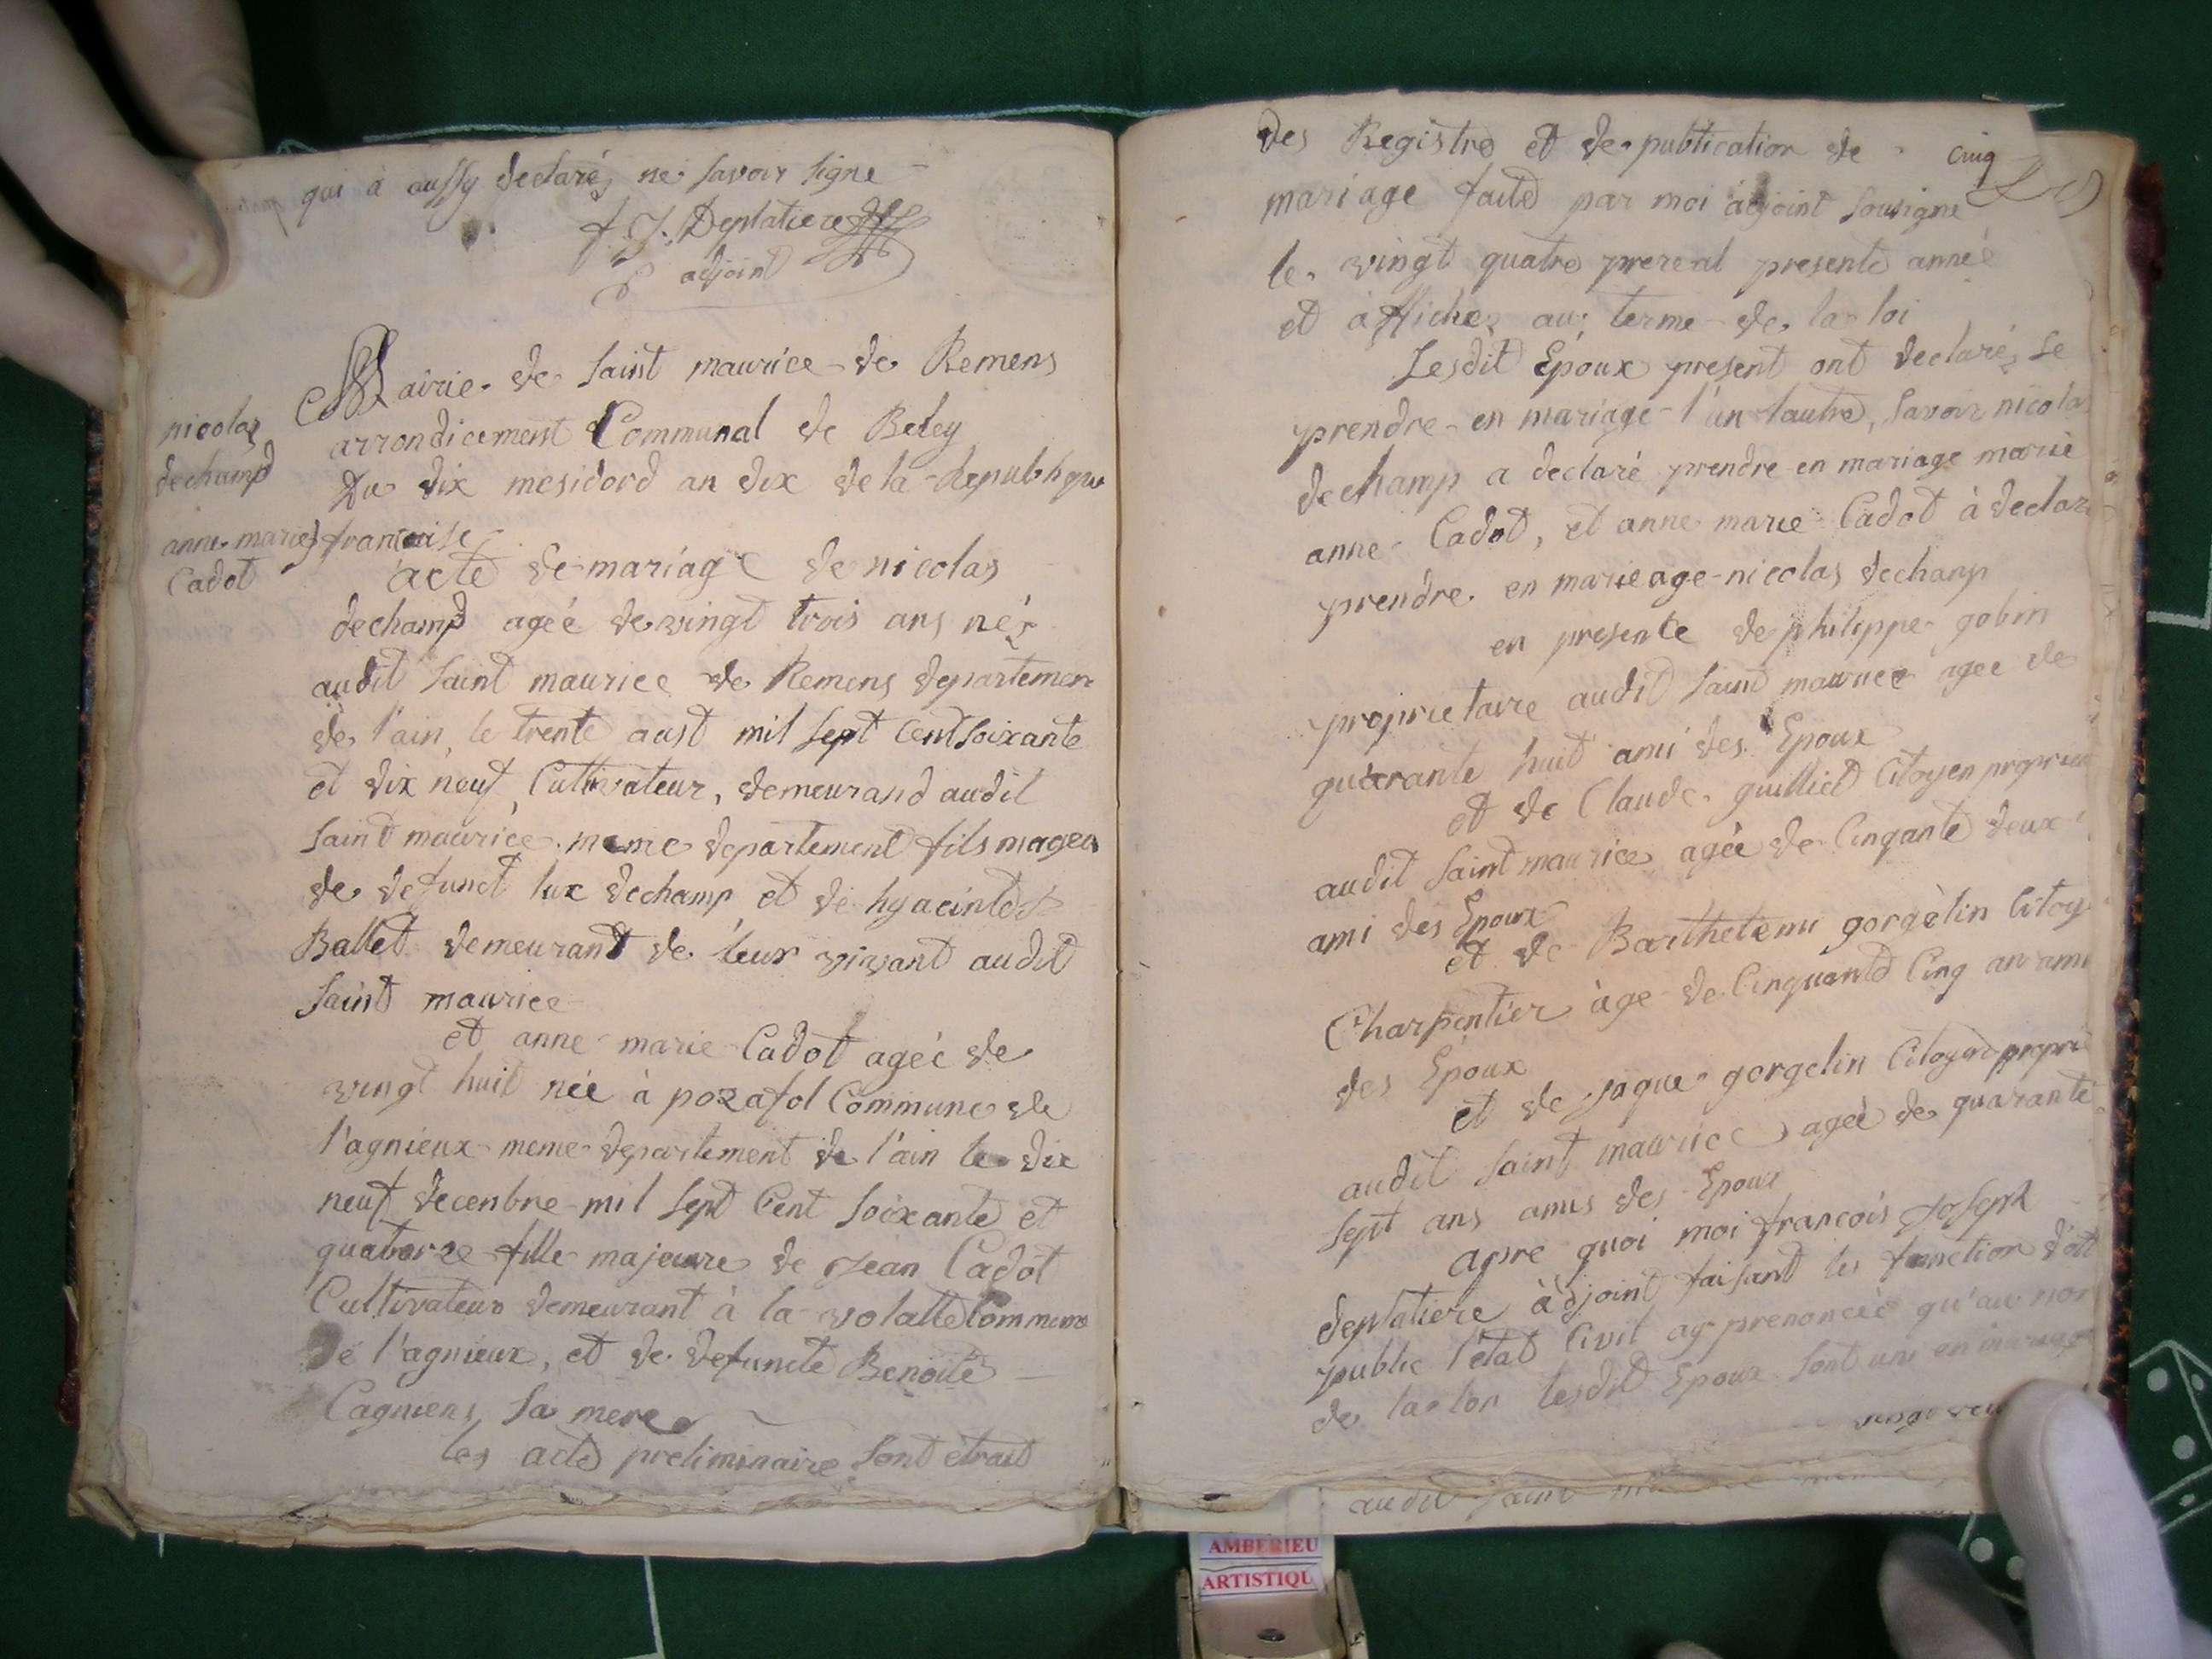 qui a aussy declaré ne savoir signe
f. J. Deplatiere
adjoint
Mairie de saint maurice de Remens
arrondicement Communal de Beley
Du dix mesidord an dix de la Republique
francaise
nicolas
dechamp
anne marie
Cadot
acte de mariage de nicolas
dechamp agée de vingt trois ans né
audit saint maurice de Remens departemen
de l'ain, le trente aust mil sept cent soixante
et dix neuf, Cultivateur, demeurand audit
saint maurice meme departement fils mageu
de defunct lux dechamp et de hyacinte
Ballet demeurant de leur vivant audit
saint maurice
et anne marie Cadot agée de
vingt huit née à pozafol Commune de
l'agnieux meme departement de l'ain le dix
neuf decenbre mil sept Cent soixante et
quatorze fille majeure de Jean Cadot
Cultivateur demeurant à la volatte Commune
de l'agnieux, et de defuncte Benoite
Cagniens sa mere
les acte preliminaire sont etrait
des Registre et de publication de
cinq
mariage faite par moi adjoint sousigne
le vingt quatre prereal presente année
et affiche au terme de la loi
Lesdit Epoux present ont declaré se
prendre en mariage l'un lautre, savoir nicolas
dechamp a declaré prendre en mariage marie
anne Cadot, et anne marie Cadot à declar
prendre en marieage nicolas dechamp
en presente de philippe gobin
proprietaire audit saint maurice agee de
quarante huit ami des Epoux
et de Claude guilliet Citoyen propriet
audit saint maurice agée de Cinqante deux
ami des Epoux
et de Barthelemi gorgelin Citoy
Charpentier àge de Cinquante Cinq an ami
des Epoux
et de jaque gorgelin Citoyen proprie
audit saint maurice agée de quarante
sept ans amis des Epoux
apre quoi moi francois joseph
deplatiere àdjoint faisant les fonction d'ott
public l'etat Civil ay prenoncée qu'au nom
de la loi lesdit Epoux sont uni en mariage
audit saint
AMBERIEU
ARTISTIQU